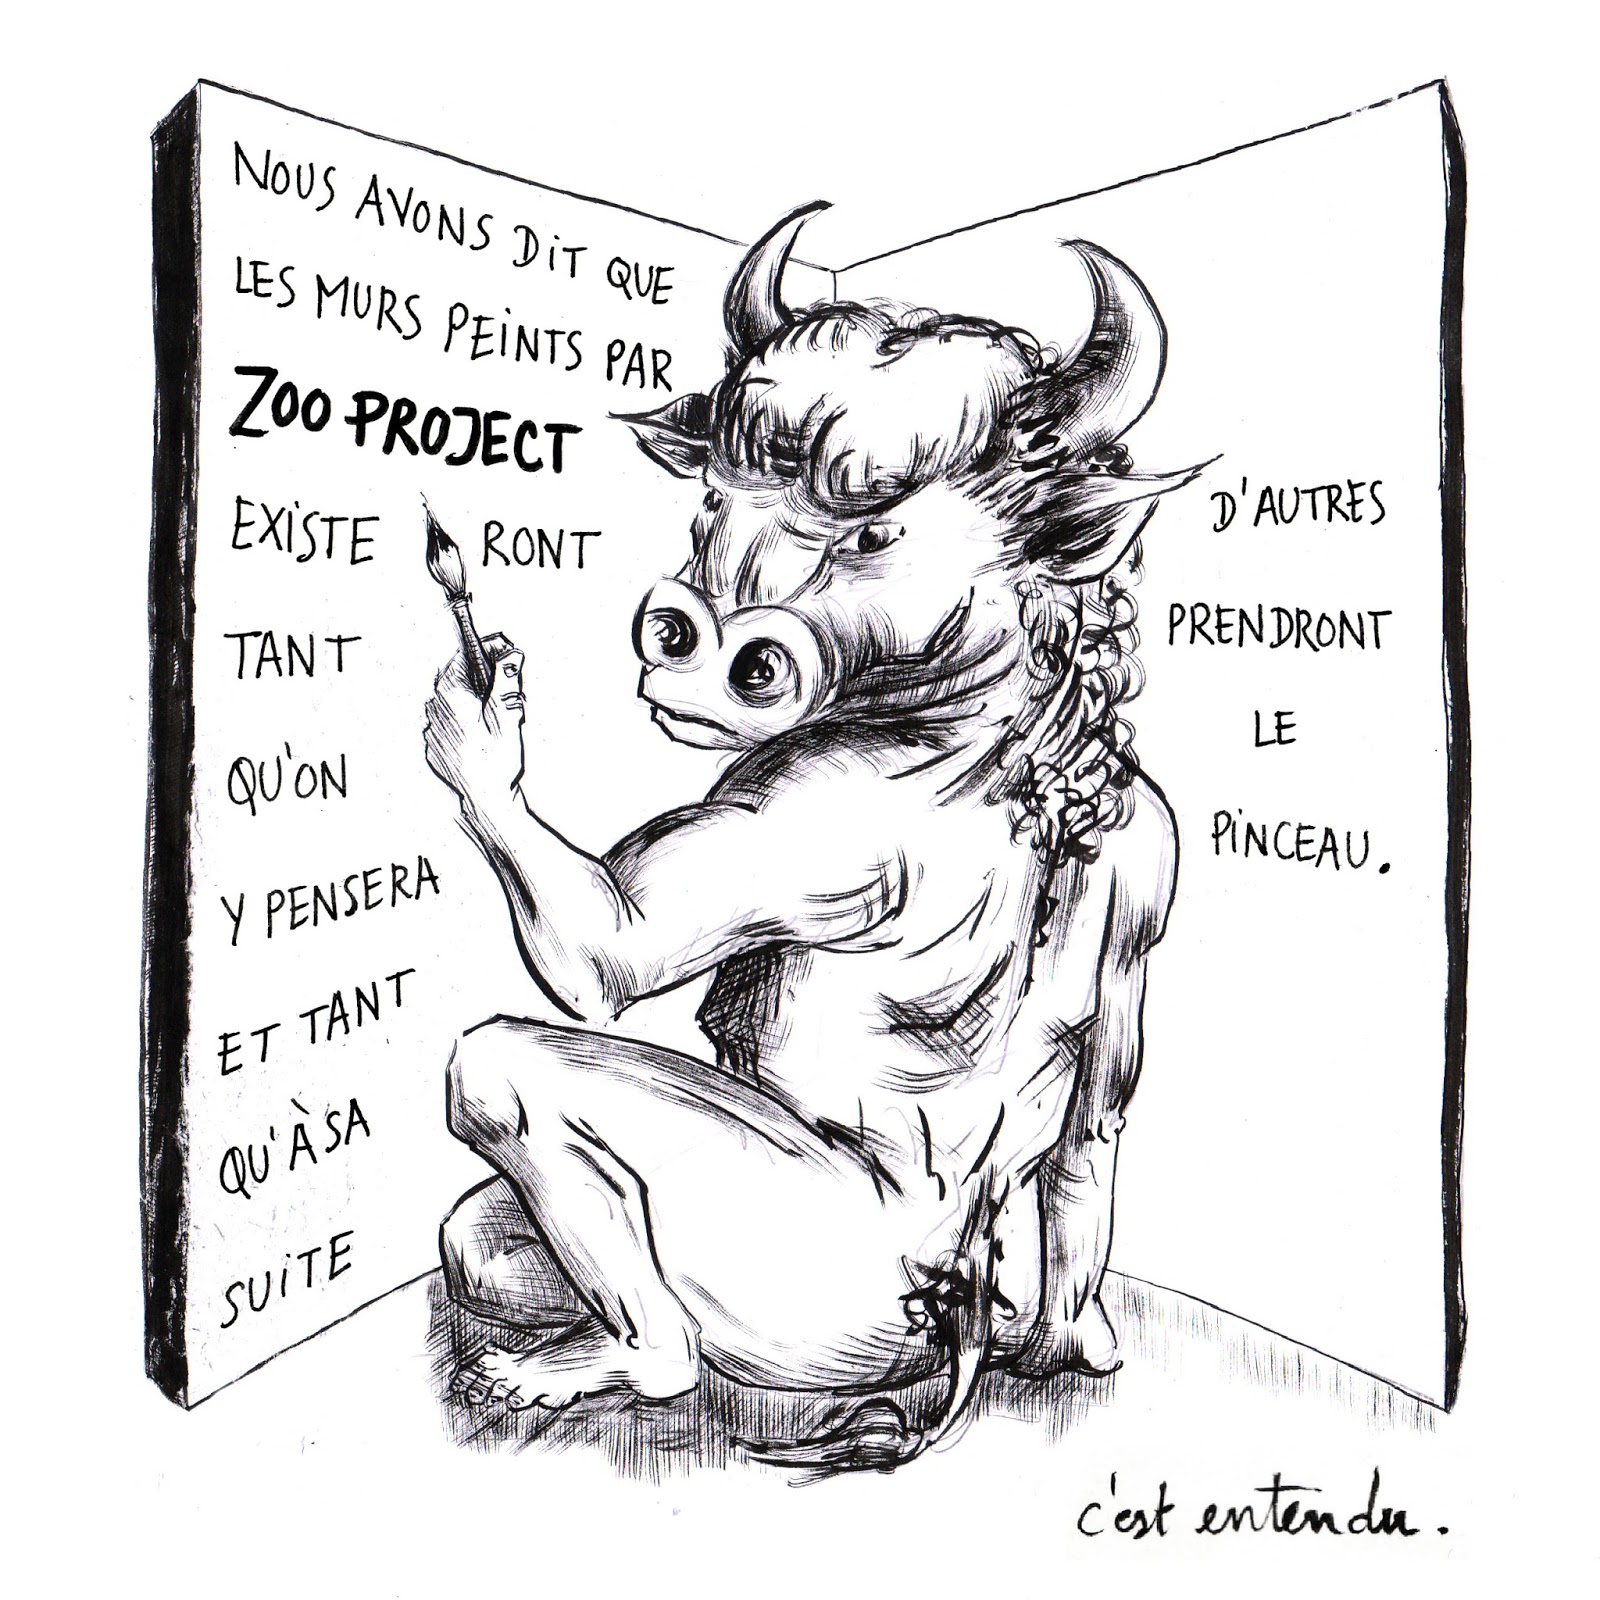 NOUS AVONS DIT QUE
LES MURS PEINTS PAR
ZOO PROJECT
EXISTE RONT
TANT
QU'ON
Y PENSERA
ET TANT
QU'À SA
SUITE
D'AUTRES
PRENDRONT
LE
PINCEAU.
c'est entendu.